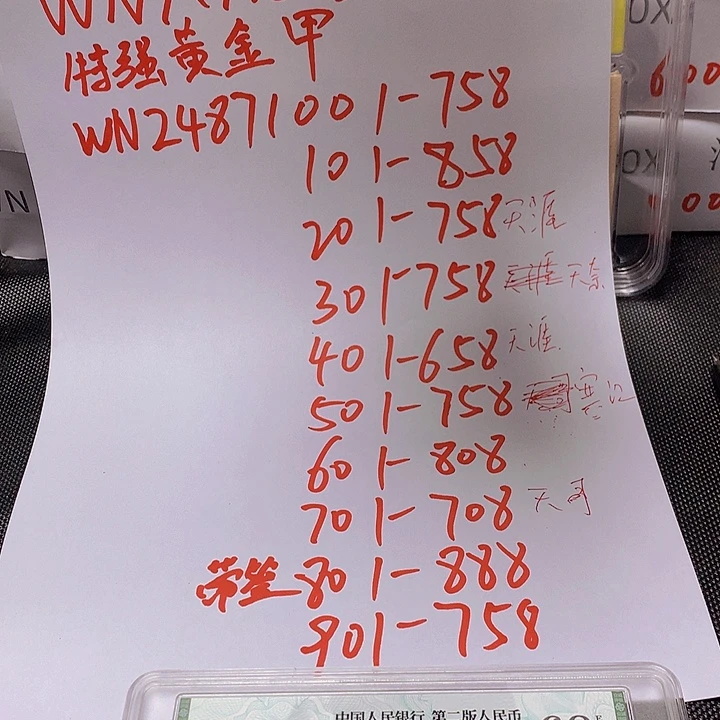 特强黄金甲
WN2487100 1-758
10 1-858
20 1-758 天涯
30 1-758 天奈
40 1-658 天涯
50 1-758
60 1-808
70 1-708 天哥
带签 80 1-888
901-758
中国人民银行 第二版人民币